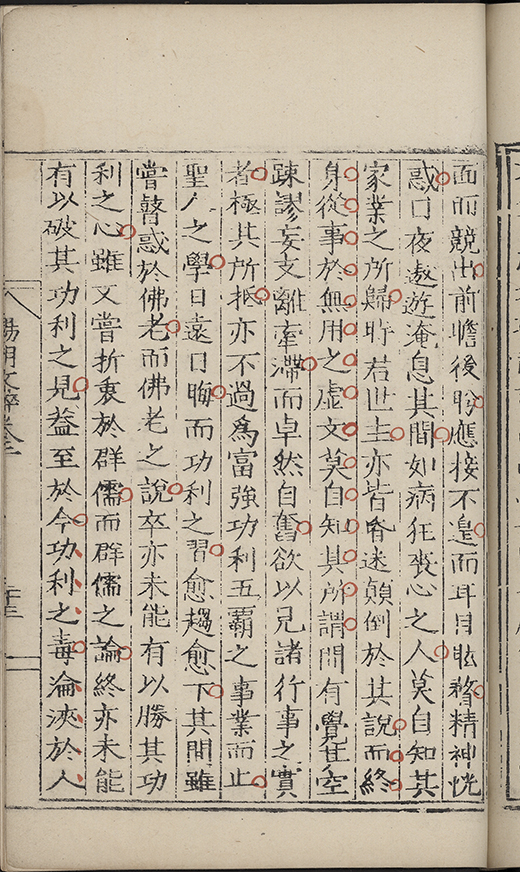 面而競出前瞻後盼應接不遑而耳目眩瞀精神恍
惑日夜遨遊淹息其間如病狂喪心之人莫自知其
家業之所歸時若世主亦皆昏迷顛倒於其說而終
身從事於無用之虛文莫自知其所謂間有覺其空
踈謬妄支離牽滯而卓然自奮欲以見諸行事之實
者極其所抵亦不過為富強功利五霸之事業而止
聖人之學日遠日晦而功利之習愈趨愈下其間雖
嘗瞽惑於佛老而佛老之說卒亦未能有以勝其功
利之心雖又嘗折衷於群儒而群儒之論終亦未能
有以破其功利之見蓋至於今功利之毒淪浹於人
陽明文粹卷三